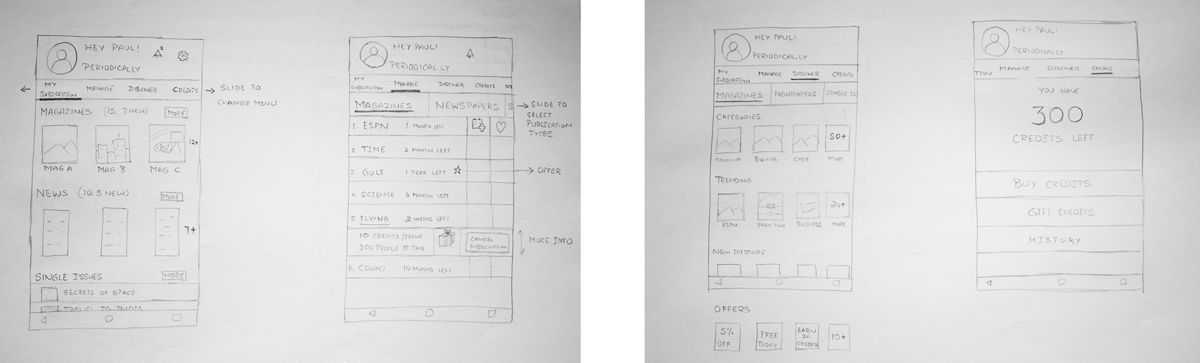 HEY PAUL!
PERIODICALLY
MY SUBSCRIPTION MANAGE DISCOVER CREDITS
SLIDE TO
CHANGE MENU
MAGAZINES (15, 3 NEW) MORE
12+
MAG A MAG B MAG C
NEWS (10, 5 NEW) MORE
7+
SINGLE ISSUES MORE
SECRETS OF SPACE
HEY PAUL!
PERIODICALLY
MY SUBSCRIPTION MANAGE DISCOVER CREDITS
MAGAZINES NEWSPAPERS S
SLIDE TO
SELECT
PUBLICATION
TYPES
1. ESPN 1 MONTH LEFT
2. TIME 2 MONTHS LEFT
3. GOLF 1 YEAR LEFT
OFFER
4. SCIENCE 6 MONTHS LEFT
5. FLYING 2 WEEKS LEFT
10 CREDITS/ISSUE
300 PEOPLE THIS
CANCEL
SUBSCRIPTION
MORE INFO
6. 10 MONTHS LEFT
HEY PAUL!
PERIODICALLY
MY SUBSCRIPTION MANAGE DISCOVER CREDITS
MAGAZINES NEWSPAPERS SINGLE IS
CATEGORIES
50+
MORE
TRENDING
20+
ESPN MORE
NEW IN STORE
OFFERS
5%
OFF
FREE
TODAY
EARN
20
CREDITS
10+
HEY PAUL!
PERIODICALLY
TION MANAGE DISCOVER CREDITS
YOU HAVE
300
CREDITS LEFT
BUY CREDITS
GIFT CREDITS
HISTORY